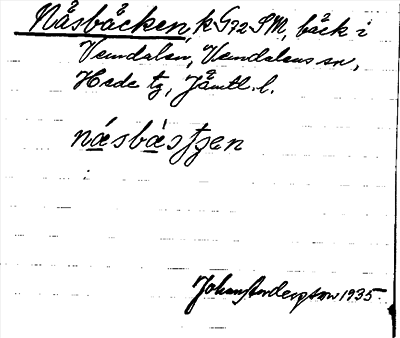 Nåsbäcken, k G72 SM, bäck i
Vemdalen, Vemdalens sn,
Hede tg, Jämtl. l.
nåsbästjen
Johan Anderson 1935